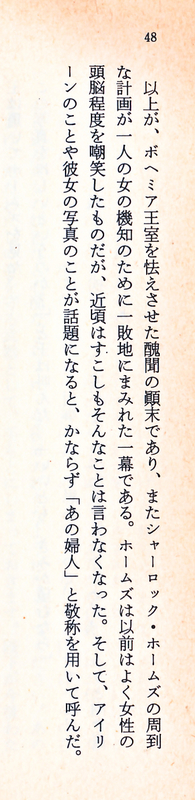 48
以上が、ボヘミア王室を怯えさせた醜聞の顚末であり、またシャーロック・ホームズの周到
な計画が一人の女の機知のために一敗地にまみれた一幕である。ホームズは以前はよく女性の
頭脳程度を嘲笑したものだが、近頃はすこしもそんなことは言わなくなった。そして、アイリ
ーンのことや彼女の写真のことが話題になると、かならず「あの婦人」と敬称を用いて呼んだ。